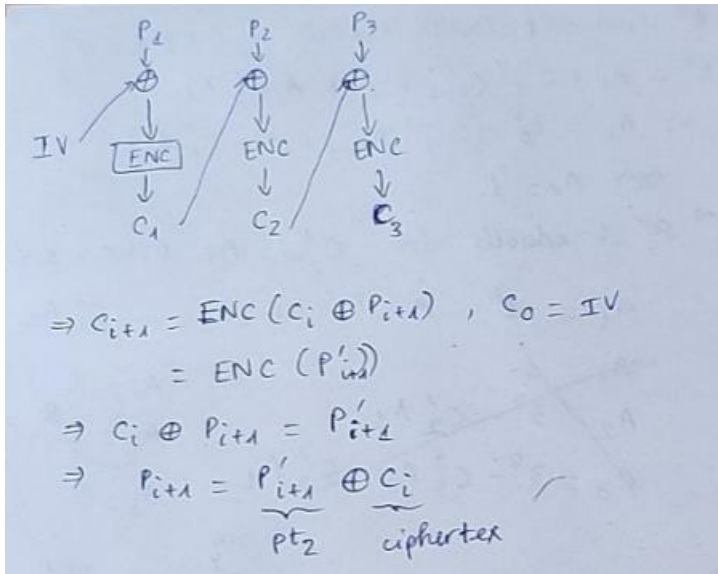 P1 P2 P3
⊕ ⊕ ⊕
IV ENC ENC ENC
C1 C2 C3
⇒ Ci+1 = ENC (Ci ⊕ Pi+1) , C0 = IV
= ENC (P'i+1)
⇒ Ci ⊕ Pi+1 = P'i+1
⇒ Pi+1 = P'i+1 ⊕ Ci
pt2 ciphertex